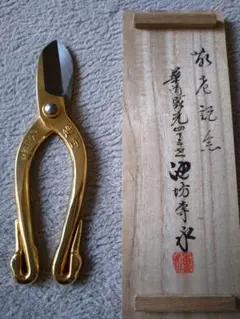 敬老記念
華道家元四十五世
池坊専永